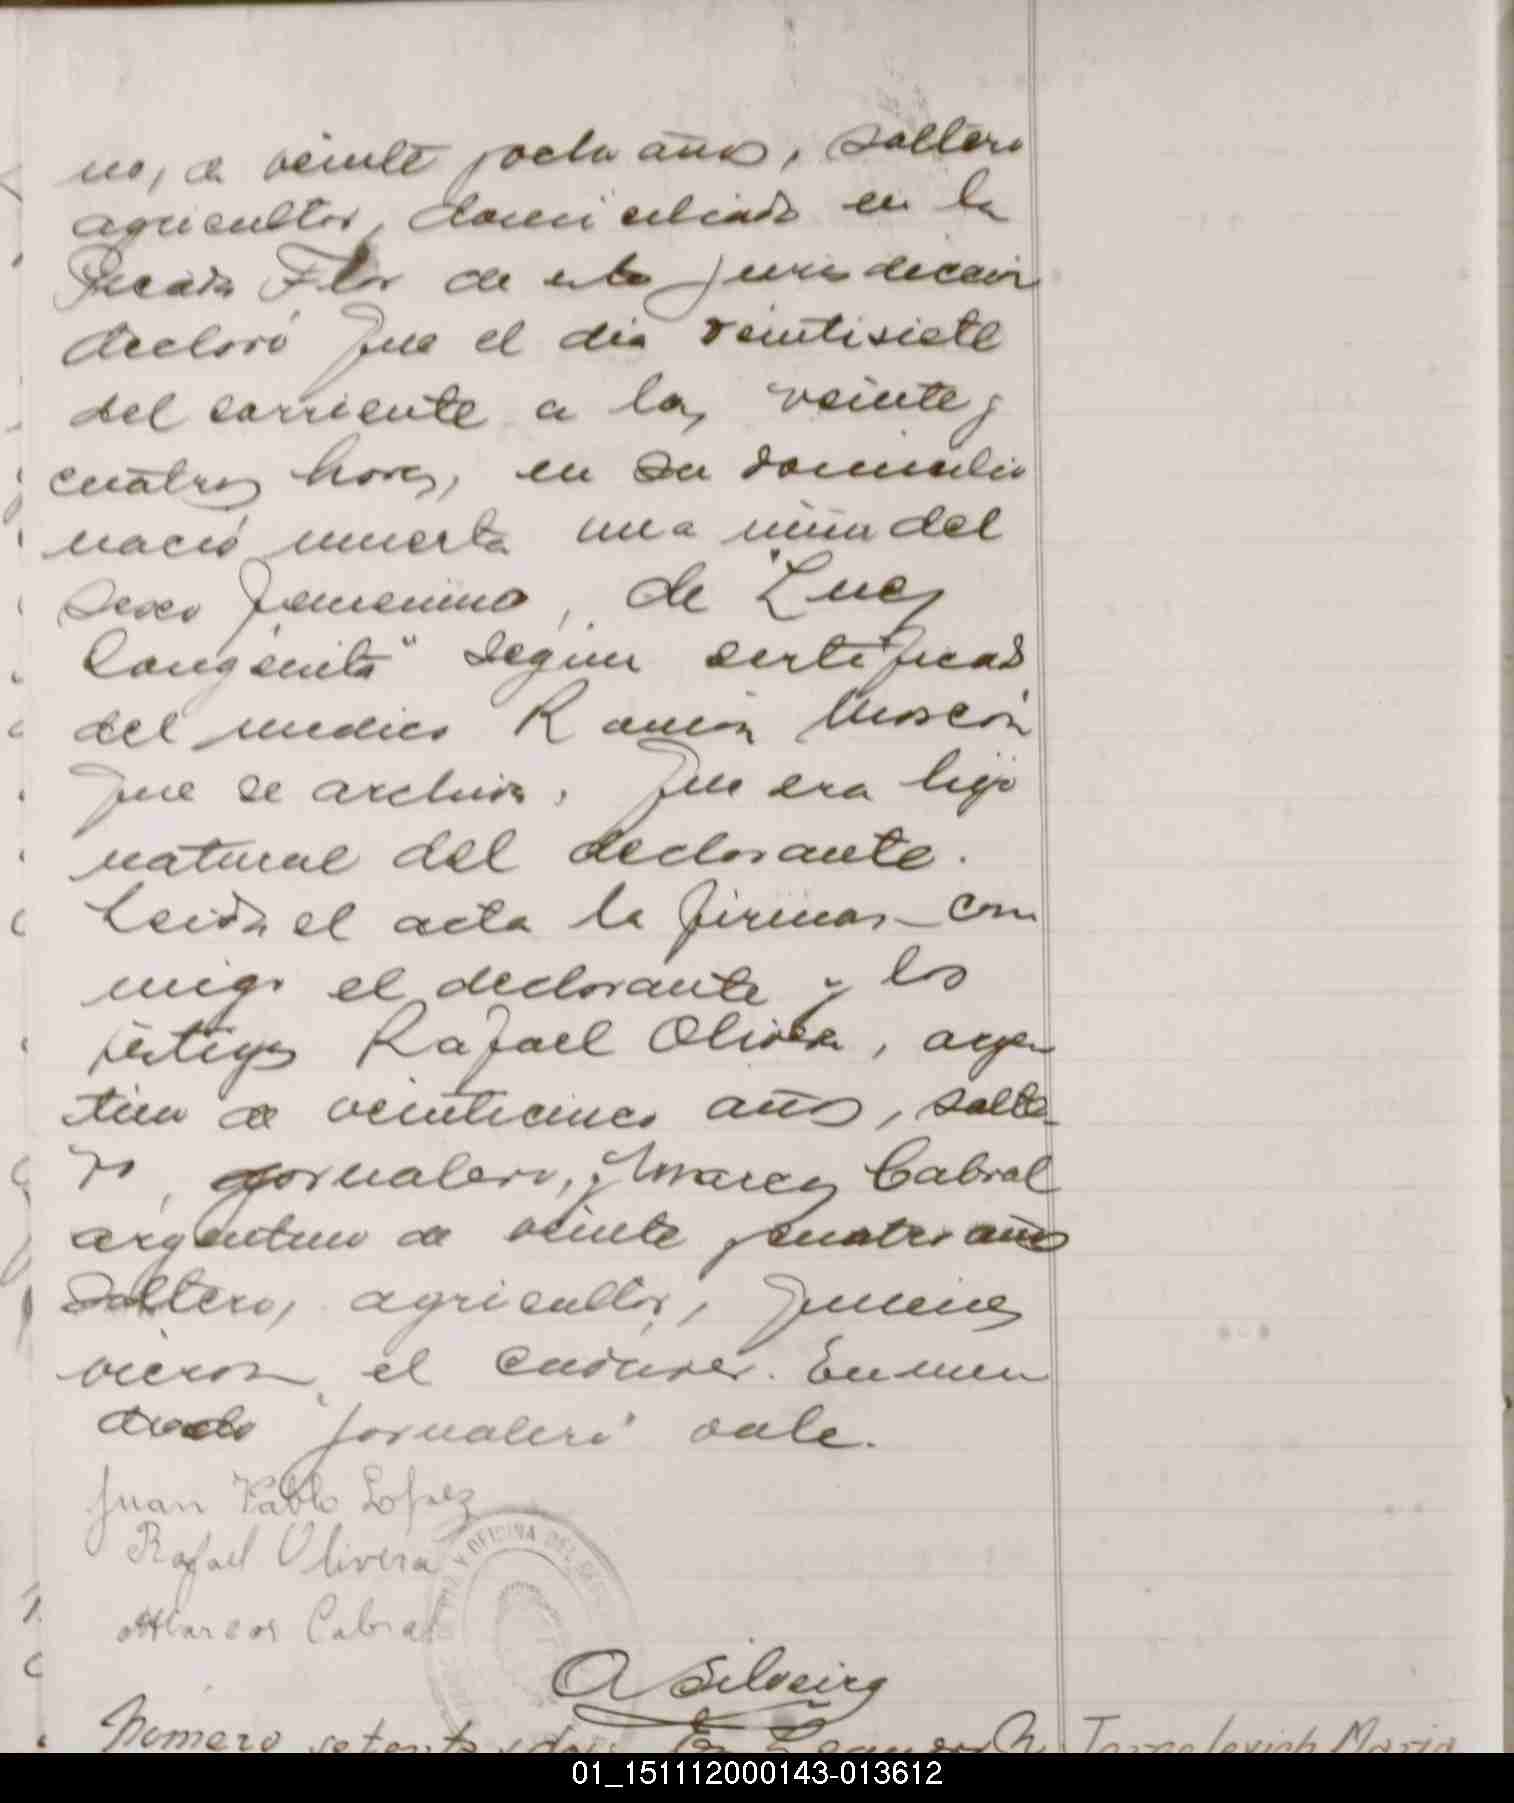 no, de veinte y ocho años, soltero
agricultor, domiciliado en la
Picada Flor de esta jurisdiccion
declaró que el dia veintisiete
del corriente a las veinte y
cuatro horas, en su domicilio
nació muerta una niña del
sexo femenino, de "Lues
Congénita" segun certificado
del medico Ramón
que se archiva. Que era hija
natural del declarante.
Leida el acta la firman con
migo el declarante y los
testigos Rafael Olivera, argen
tino de veinticinco años, solte
ro, jornalero, y Marcos Cabral
argentino de veinte y cuatro años
soltero, agricultor, quienes
vieron el cadaver. Enmen
dado "jornalero" vale.
Juan Pablo Lopez
Rafael Olivera
Marcos Cabral
Y OFICINA DEL
A Silveira
Número setenta y dos: En Leandro N. María
01_151112000143-013612